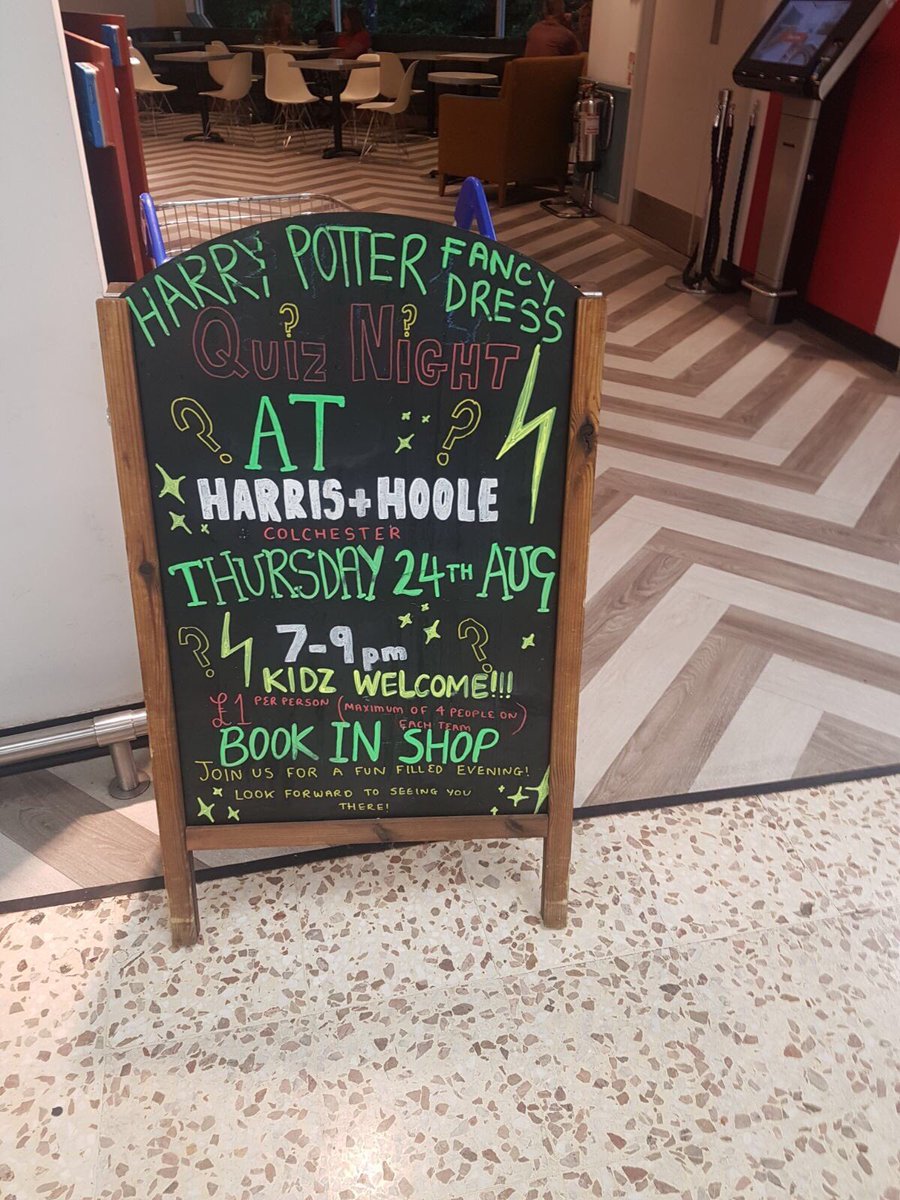 HARRY POTTER FANCY DRESS
QUIZ NIGHT
AT
HARRIS+HOOLE
COLCHESTER
THURSDAY 24TH AUG
7-9pm
KIDZ WELCOME!!!
£1 PER PERSON (MAXIMUM OF 4 PEOPLE ON EACH TEAM)
BOOK IN SHOP
JOIN US FOR A FUN FILLED EVENING!
LOOK FORWARD TO SEEING YOU
THERE!